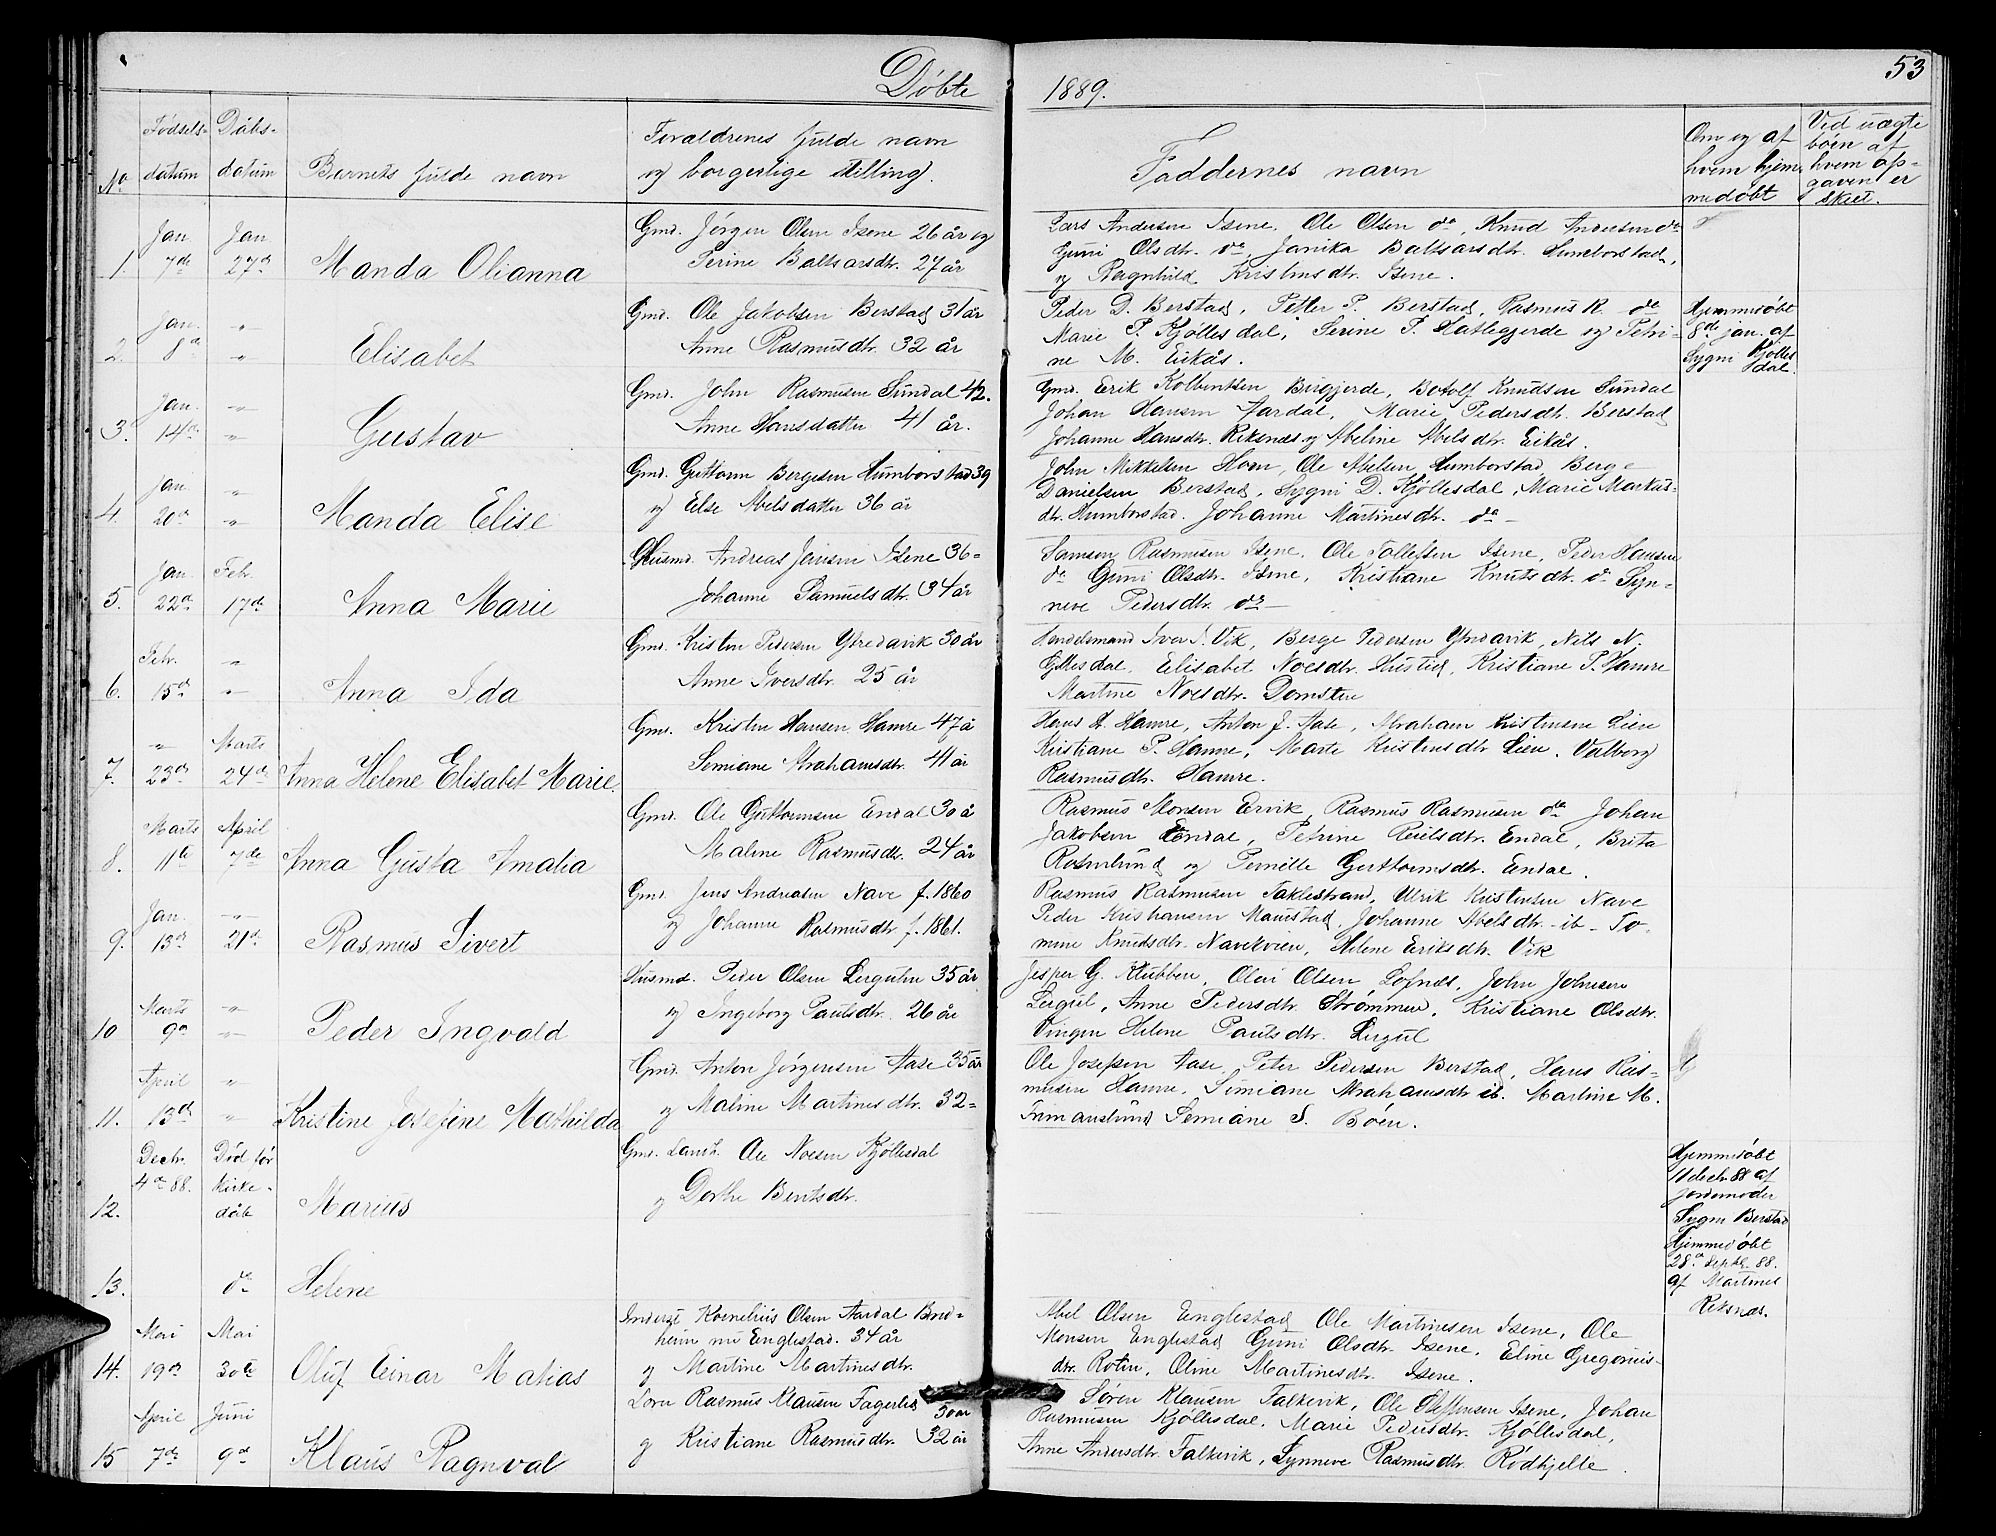 53
Döbte 1889.
No
Födsels-
datum
Dåbs-
datum
Barnets fulde navn
Forældrenes fulde navn
og borgerlige stilling.
Faddernes navn
Om og af
hvem hjem-
medöbt
Ved uægte
börn af
hvem op-
gaven er
skeet.
1. Jan. 7de Jan. 27de Manda Olianna
Gmd. Jörgen Olsen Isene 26 år og
Perine Baltsarsdtr. 27 år
Lars Andersen Isene, Ole Olsen do, Knud Andersen do
Guni Olsdtr. do Janika Baltsarsdtr. Humborstad,
og Ragnhild Kristensdtr. Isene.
2. Jan. 8de " Elisabet
Gmd. Ole Jakobsen Berstad 31 år
Anne Rasmusdtr. 32 år
Peder D. Berstad, Petter P. Berstad, Rasmus R. do
Marie P. Kjöllesdal, Serine P. Hatlegjerde og Petri-
ne M. Eikås.
Hjemmedöbt
8de jan. af
Sygni Kjölles
dal.
3. Jan. 14de " Gustav
Gmd. John Rasmusen Sundal 42.
Anne Hansdatter 41 år.
Gmd. Erik Kolbentsen Birgjerde, Botolf Knudsen Sundal
Johan Hansen Aardal, Marie Pedersdtr. Berstad
Johanne Hansdtr. Reksnæs og Abeline Abelsdtr. Eikås.
4. Jan. 20de " Manda Elise
Gmd. Guttorm Bergesen Humborstad 39
og Else Abelsdatter 36 år
John Mikkelsen Hoen, Ole Abelsen Humborstad, Berge
Danielsen Berstad, Sygni D. Kjöllesdal, Marie Markus-
dtr. Humborstad. Johanne Martinesdtr. do
5. Jan. 22de Febr. 17de Anna Marie
Husmd. Andreas Jensen Isene 36
Johanne Samuelsdtr. 34 år
Samson Rasmusen Isene. Ole Tollefsen Isene, Peder Hansen
do Guni Olsdtr. Isene, Kristiane Knutsdtr. do Syn-
neve Pedersdtr. do
6. Febr. 15de " Anna Ida
Gmd. Kristen Pedersen Ytredavik 30 år
Anne Iversdtr. 25 år
Handelsmand Iver I. Vik, Berge Pedersen Ytredavik, Nils N.
Gillesdal. Elisabet Noesdtr. Hustad, Kristiane P. Hamre
Martine Noesdtr. Domsten
7. " 23de Marts 24de Anna Helene Elisabet Marie.
Gmd. Kristen Hansen Hamre 47 å
Semiane Abrahamsdtr. 41 år
Hans A. Hamre, Anton J. Aase, Abraham Kristensen Lien
Kristiane P. Hamre, Marte Kristensdtr Lien. Valborg
Rasmusdtr. Hamre.
8. Marts 11te April 7de Anna Gusta Amalia
Gmd. Ole Guttormsen Endal 30 å
Maline Rasmusdtr. 24 år
Rasmus Monsen Ervik, Rasmus Rasmusen do Johan
Jakobsen Endal, Petrine Reielsdtr. Endal, Brita
Rosenlund og Pernille Guttormsdtr. Endal.
9. Jan. 13de " 21de Rasmus Sivert
Gmd. Jens Andreasen Nave f. 1860
og Johanne Rasmusdtr f. 1861.
Rasmus Rasmusen Taklestrand, Ulrik Kristensen Nave
Peder Kristiansen Maurstad, Johanne Abelsdtr. ib. To-
mine Knudsdtr. Navekvien, Helene Eriksdtr. Vik
10 Marts 9de " Peder Ingvald
Husmd. Peder Olsen Lergulen 35 år
og Ingeborg Paulsdtr. 26 år
Jesper G. Klubben, Olai Olsen Lofnæs, John Johnsen
Lergul, Anne Pedersdtr. Strömmen, Kristiane Olsdtr.
Vingen Helene Paulsdtr. Lergul
11. April 13de " Kristine Josefine Mathilda
Gmd. Anton Jörgensen Aase 35 år
og Maline Martinesdtr. 32
Ole Josefsen Aase, Peter Pedersen Berstad, Hans Ras-
musen Hamre, Simiane Abrahamsdtr ib. Martine M.
Inmarslund Semiane S. Böen.
12. Decbr. 4de 88. Död för
kirke-
dåb Marius
Gmd. Landh. Ole Noesen Kjöllesdal
og Dorthe Berntsdtr.
Hjemmedöbt
11 decbr 88 af
jordemoder
Sygni Berstad
13. do Helene
Hjemmedöbt
28de Septbr. 88.
af Martines
Reksnæs.
14. Mai 19de Mai 30te Oluf Einar Matias
Inderst Kornelius Olsen Aardal Bred-
heim nu Englestad. 34 år
og Martine Martinesdtr.
Abel Olsen Englestad Ole Martinesen Isene, Ole
Monsen Englestad Guni Olsdtr. Isene, Eline Gregorius-
dtr. Roten, Oline Martinesdtr. Isene.
15 April 7de Juni 9de Klaus Ragnval
Lorn Rasmus Klausen Fagerlid 30 år
og Kristiane Rasmusdtr. 32 år
Sören Klausen Falkevik, Ole Steffensen Isene, Johan
Rasmusen Kjöllesdal, Marie Pedersdtr. Kjöllesdal,
Anne Andersdtr. Falkevik, Synneve Rasmusdtr. Rödhjelle.